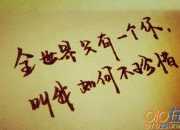 全世界只有一个你，
叫我如何不珍惜